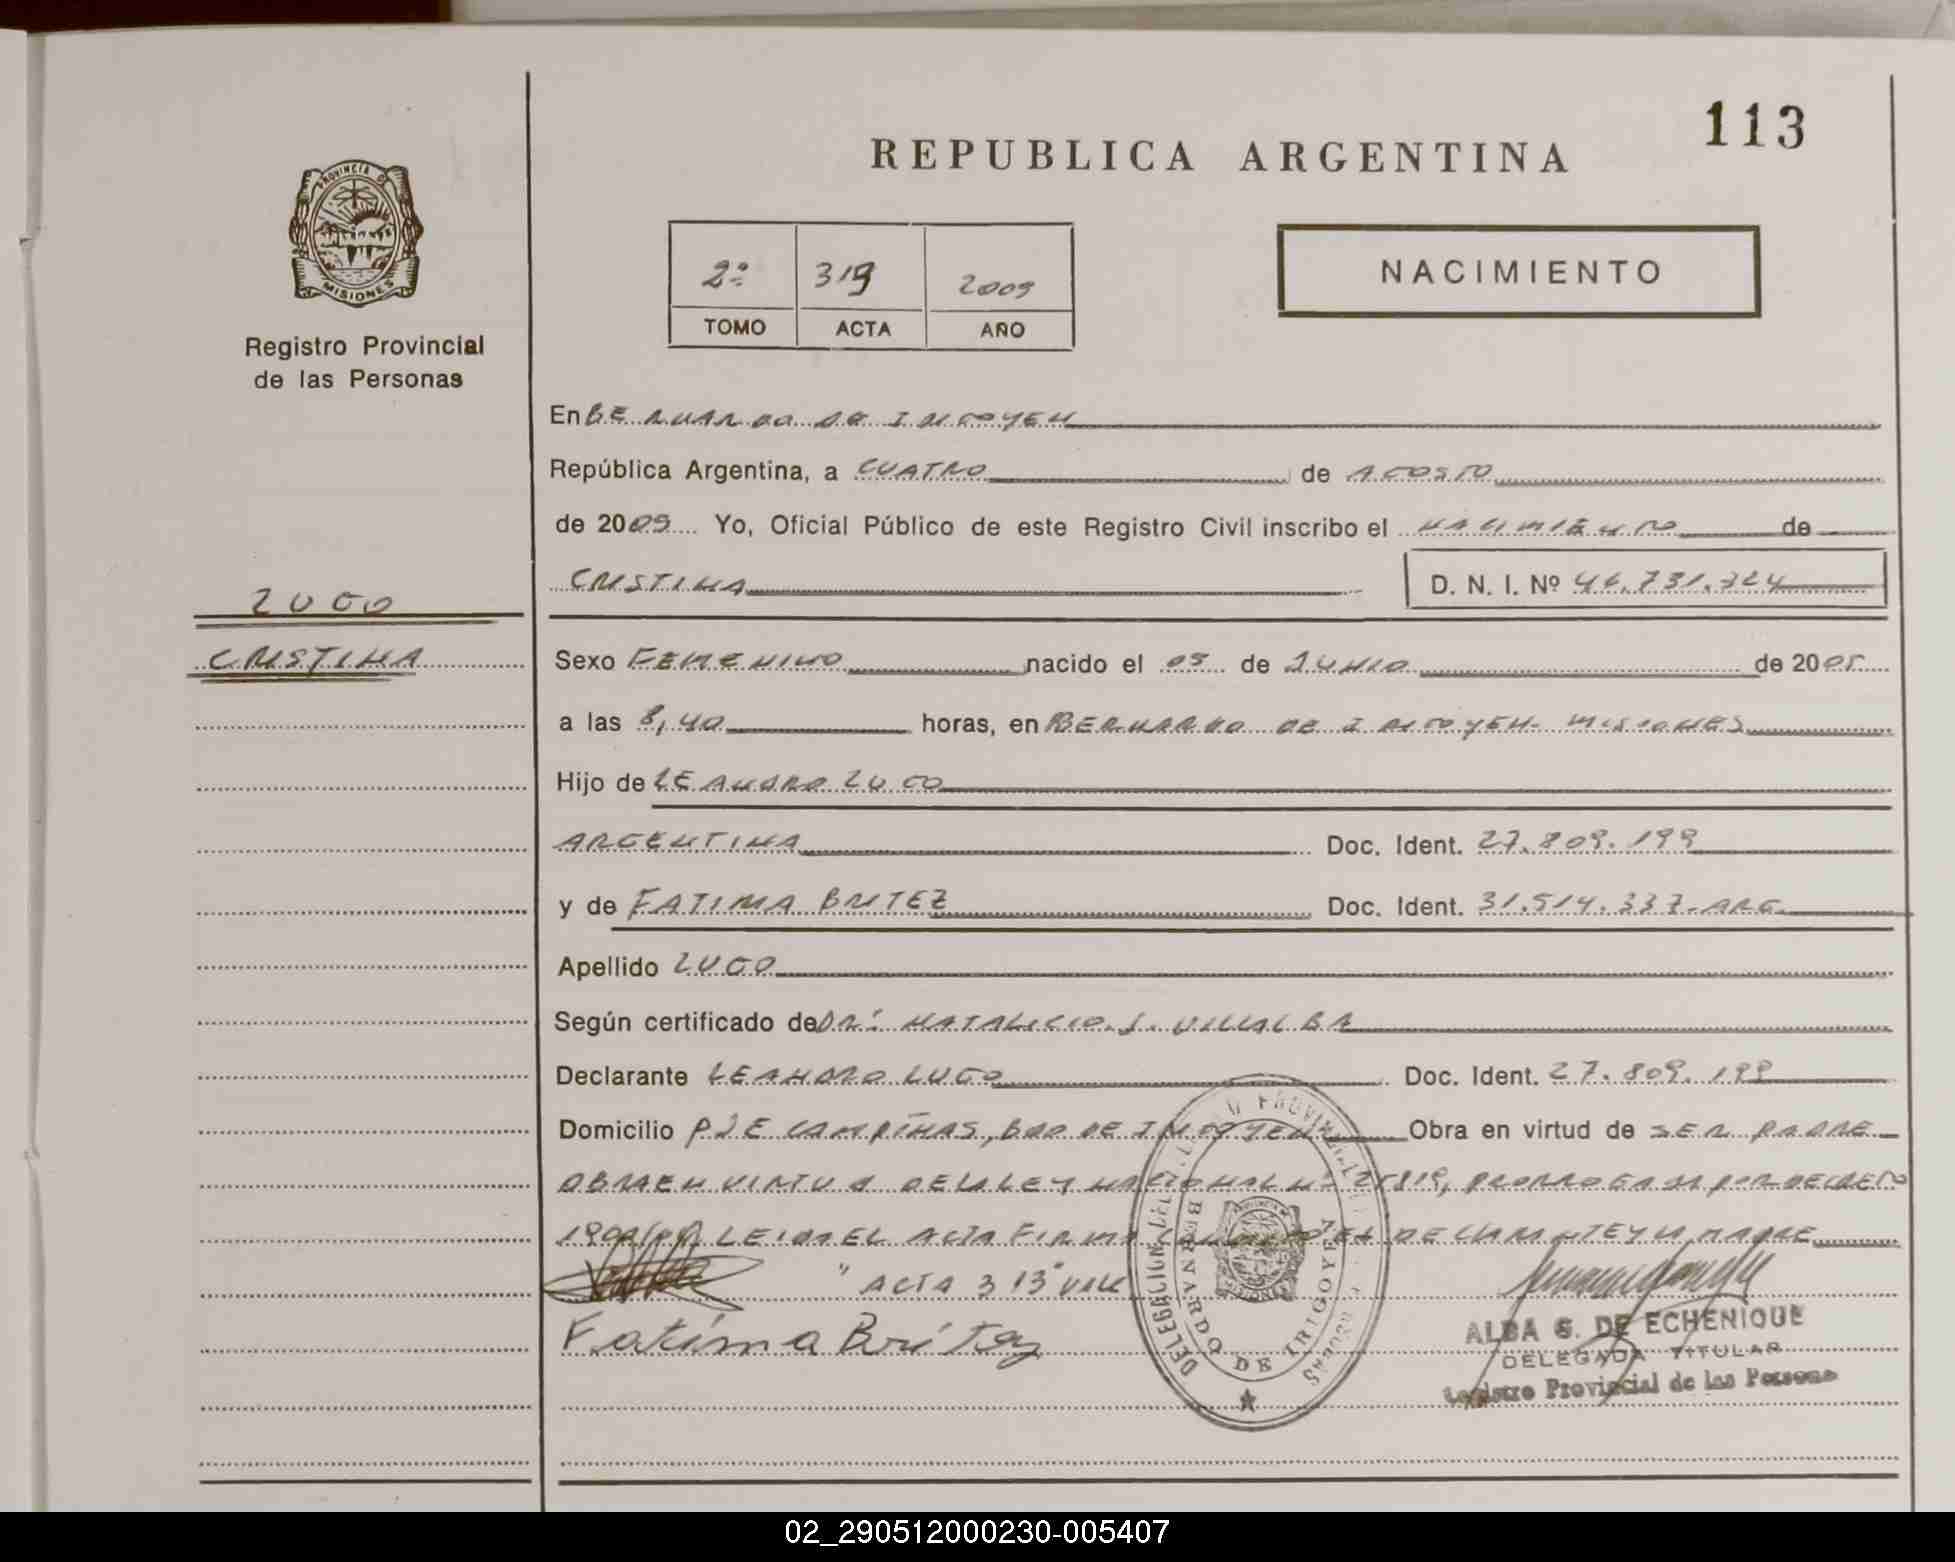 113
REPUBLICA ARGENTINA
PROVINCIA DE
MISIONES
Registro Provincial
de las Personas
2º 319 2009
TOMO ACTA AÑO
NACIMIENTO
En BERNARDO DE IRIGOYEN
República Argentina, a CUATRO de AGOSTO
de 2009 Yo, Oficial Público de este Registro Civil inscribo el NACIMIENTO de
CRISTINA D. N. I. Nº 46.731.324
LUGO
CRISTINA
Sexo FEMENINO nacido el 09 de JUNIO de 2005
a las 8,40 horas, en BERNARDO DE IRIGOYEN- MISIONES
Hijo de LEANDRO LUGO
ARGENTINA Doc. Ident. 27.809.199
y de FATIMA BRITEZ Doc. Ident. 31.514.337-ARG.
Apellido LUGO
Según certificado de DR: NATALICIO J. VILLALBA
Declarante LEANDRO LUGO Doc. Ident. 27.809.199
Domicilio PJE CAMPIÑAS, BDO DE IRIGOYEN Obra en virtud de SER PADRE
OBRA EN VIRTUD DE LA LEY NACIONAL Nº 25819, PRORROGADA POR DECRETO
LEIDA EL ACTA FIRMA EL DECLARANTE Y LA MADRE
" ACTA 313" VALE
Fatima Britez
DELEGACION DEL PROVINCIAL
BERNARDO DE IRIGOYEN
ALBA G. DE ECHENIQUE
DELEGADA TITULAR
Registro Provincial de las Persona
02_290512000230-005407